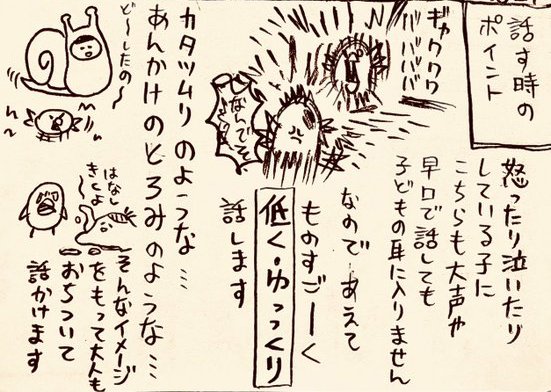 話す時の
ポイント
怒ったり泣いたり
している子に
こちらも大声や
早口で話しても
子どもの耳に入りません
ギャワワワ
バババババ
なんでで
なので あえて
ものすごーく
低く・ゆっくり
話します
カタツムリのような…
あんかけのとろみのような…
ど〜したの〜
はなし
きくよ
そんなイメージ
をもって大人も
おちついて
話かけます